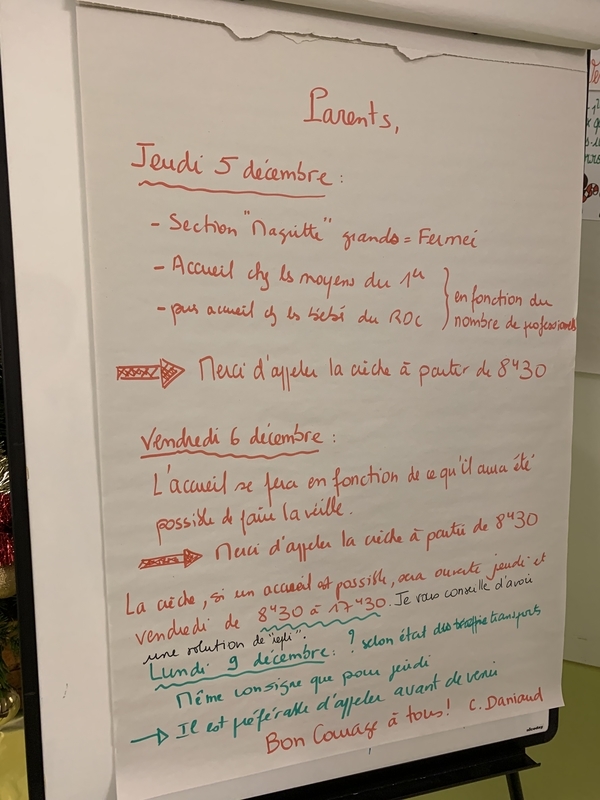 Parents,
Jeudi 5 décembre :
- Section "Magritte" grands = Fermé
- Accueil chez les moyens du 1er
- puis accueil chez les bébé du RDC
en fonction du
nombre de professionnels
Merci d'appeler la crèche à partir de 8H30
Vendredi 6 décembre :
L'accueil se fera en fonction de ce qu'il aura été
possible de faire la veille.
Merci d'appeler la crèche à partir de 8H30
La crèche, si un accueil est possible, sera ouverte jeudi et
vendredi de 8H30 à 17H30. Je vous conseille d'avoir
une solution de "repli".
Lundi 9 décembre : ? selon état des transports
Même consigne que pour jeudi
→ Il est préférable d'appeler avant de venir
Bon Courage à tous! C. Daniaud